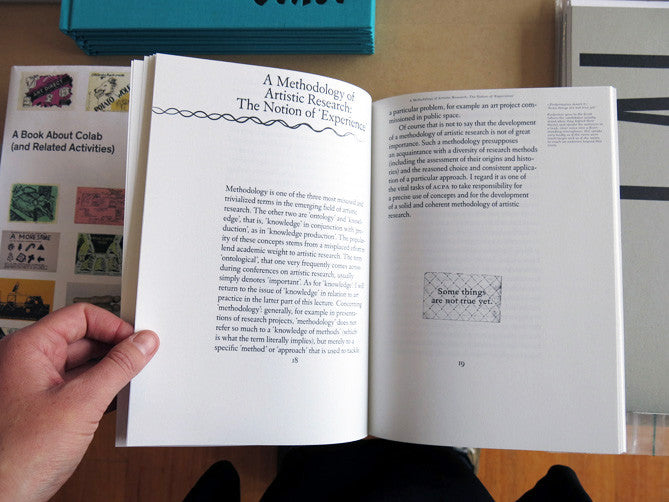 A Book About Colab
(and Related Activities)
A MORE STORE
A Methodology of
Artistic Research:
The Notion of ‘Experience’
Methodology is one of the three most misused and
trivialized terms in the emerging field of artistic
research. The other two are ‘ontology’ and ‘knowl-
edge’, that is, ‘knowledge’ in conjunction with ‘pro-
duction’, as in ‘knowledge production’. The popular-
ity of these concepts stems from a misplaced effort to
lend academic weight to artistic research. The term
‘ontological’, that one very frequently comes across
during conferences on artistic research, usually
simply denotes ‘important’. As for ‘knowledge’ I will
return to the issue of ‘knowledge’ in relation to art
practice in the latter part of this lecture. Concerning
‘methodology’: generally, for example in presenta-
tions of research projects, ‘methodology’ does not
refer so much to a ‘knowledge of methods’ (which
is what the term literally implies), but merely to a
specific ‘method’ or ‘approach’ that is used to tackle
18
A Methodology of Artistic Research: The Notion of ‘Experience’
a particular problem, for example an art project com-
missioned in public space.
Of course that is not to say that the development
of a methodology of artistic research is not of great
importance. Such a methodology presupposes
an acquaintance with a diversity of research methods
(including the assessment of their origins and histo-
ries) and the reasoned choice and consistent applica-
tion of a particular approach. I regard it as one of
the vital tasks of ACPA to take responsibility for
a precise use of concepts and for the development
of a solid and coherent methodology of artistic
research.
Some things
are not true yet.
19